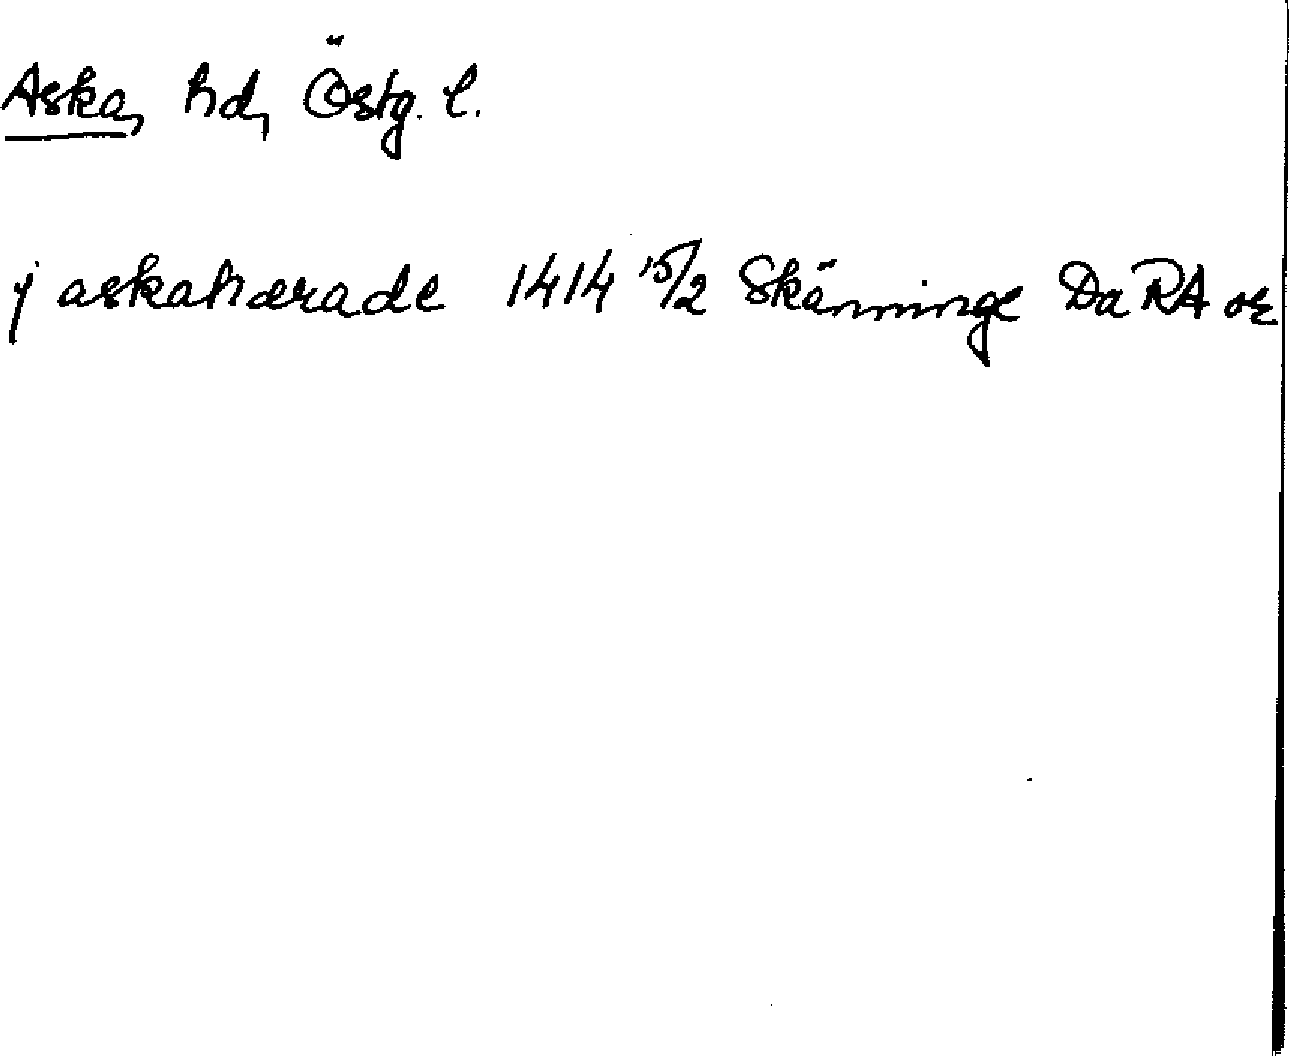 Aska, hd, Östg. l.
j askahærade 1414 15/2 Skänninge Da RA or